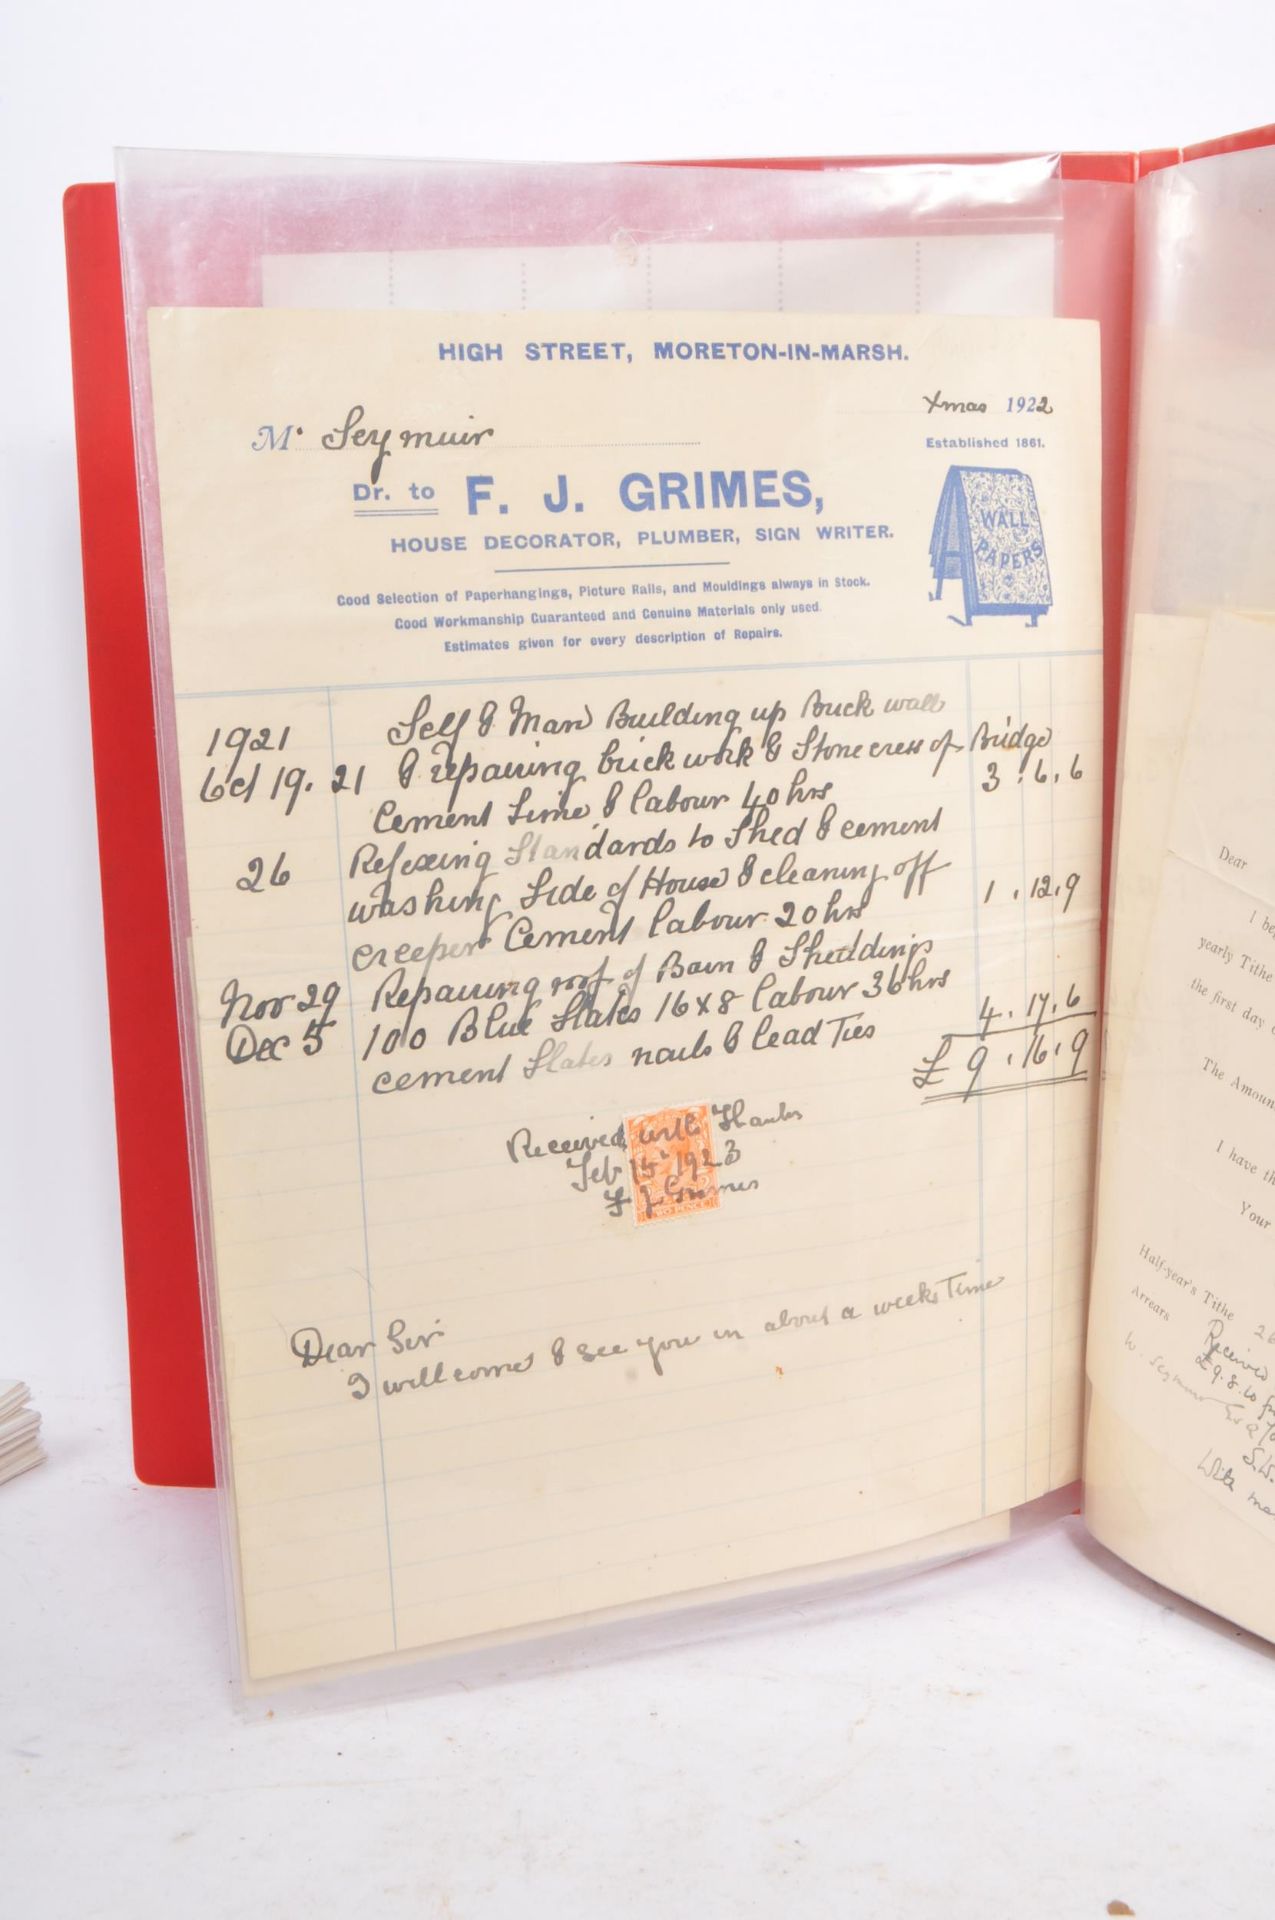 HIGH STREET, MORETON-IN-MARSH.
Xmas 1922
Mr Seymuir
Established 1861.
Dr. to F. J. GRIMES,
WALL PAPERS
HOUSE DECORATOR, PLUMBER, SIGN WRITER.
Good Selection of Paperhangings, Picture Rails, and Mouldings always in Stock.
Good Workmanship Guaranteed and Genuine Materials only used.
Estimates given for every description of Repairs.
1921 Self & Man Building up Brick wall
Oct 19. 21 & repairing brick work & Stone cress of Bridge
Cement Lime & labour 40 hrs 3 . 6 . 6
26 Refixing Standards to Shed & cement
washing Side of House & cleaning off
creeper Cement labour 20 hrs 1 . 12 . 9
Nov 29 Repairing roof of Barn & Sheddings
Dec 5 100 Blue Slates 16 x 8 labour 36 hrs
cement Slates nails & lead Ties 4 . 17 . 6
£ 9 . 16 . 9
Received with Thanks
Feb 15 1923
F J Grimes
TWO PENCE
Dear Sir
I will come & see you in about a weeks Time
Dear
I
yearly Tithe
the first day
The Amoun
I have th
Your
Half-year's Tithe 26
Arrears
Received
£9.8.10
W. Seymour
With